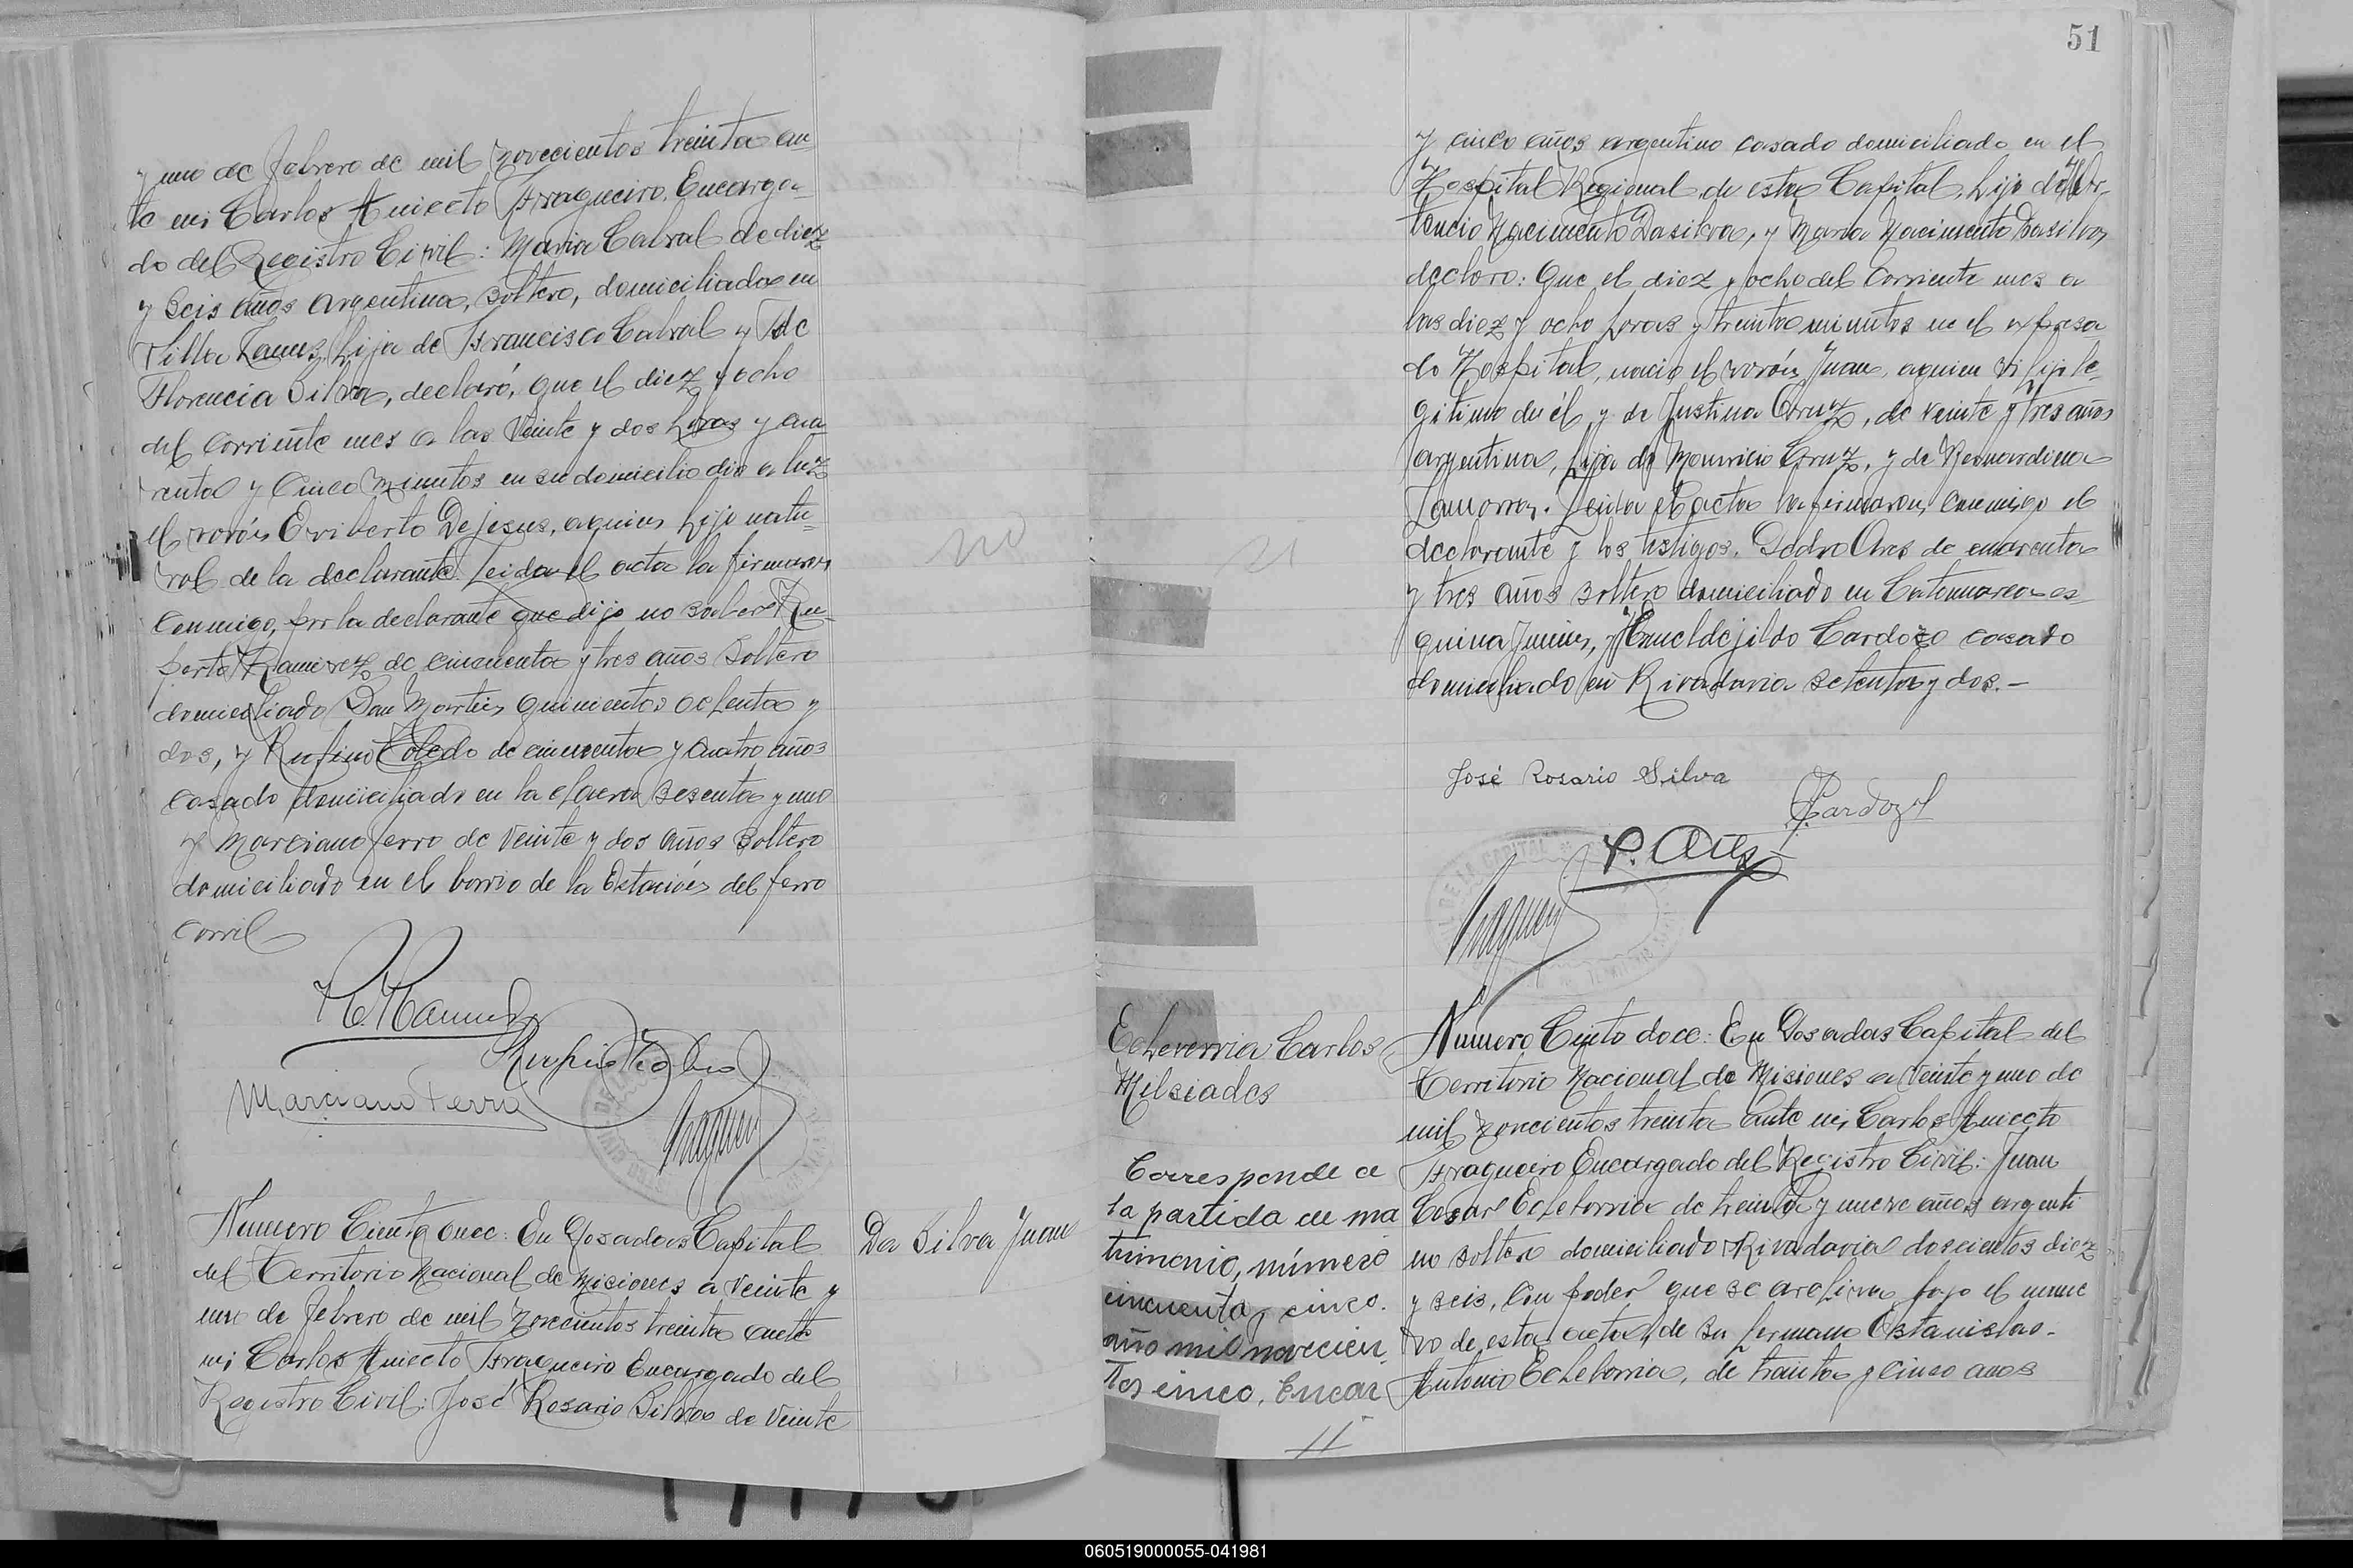 y uno de febrero de mil novecientos treinta an
te mi Carlos Aniceto Fragueiro. Encarga-
do del Registro Civil: Maria Cabral de diez
y seis años argentina, soltera, domiciliada en
Villa Lanus, hija de Francisco Cabral y de
Florencia Silva, declaró, que el diez y ocho
del corriente mes a las veinte y dos horas y cua
renta y cinco minutos en su domicilio dio a luz
el varón Eriberto De jesus, aquien hijo natu-
ral de la declarante. Leida el acta la firmaron
conmigo, por la declarante que dijo no saber Ru-
perto Ramirez de cincuenta y tres años soltero
domiciliado San Martin quinientos ochenta y
dos, y Rufino Toledo de cincuenta y cuatro años
casado domiciliado en la chacra sesenta y uno
y Marciano ferro de veinte y dos años soltero
domiciliado en el barrio de la Estación del ferro
carril
R. Ramirez
Rufino Toledo
Marciano Ferro
no
Numero Ciento once: En Posadas Capital
del Territorio Nacional de Misiones a veinte y
uno de febrero de mil novecientos treinta ante
mi Carlos Aniceto Fragueiro Encargado del
Registro Civil: José Rosario Silva de veinte
Da Silva Juan
51
y cinco años argentino casado domiciliado en el
Hospital Regional de esta Capital, hijo de
Nacimento Dasilva, y Maria Nacimento Dasilva,
declaro: Que el diez y ocho del corriente mes a
las diez y ocho horas y treinta minutos en el expresa
do Hospital, nacio el varón Juan, aquien vi hijo le-
gitimo de él y de Justina Cruz, de veinte y tres años
argentina, hija de Mauricio Cruz, y de Bernardina
Zamorra. Leida el acta la firmaron conmigo el
declarante y los testigos. Pedro Ares de cuarenta
y tres años soltero domiciliado en Catamarca es-
quina Junin, y Emeldejildo Cardozo casado
domiciliado en Rivadavia setenta y dos.-
21
José Rosario Silva
Cardozo
P. Ares
Echeverria Carlos
Milsiades
Corresponde a
la partida de ma
trimonio, número
cincuenta y cinco.
año mil novecien
tos cinco. Encar
11
Numero Ciento doce: En Posadas Capital del
Territorio Nacional de Misiones a veinte y uno de
mil novecientos treinta ante mi Carlos Aniceto
Fragueiro Encargado del Registro Civil: Juan
Cesar Echeborria de treinta y nueve años argenti
no soltero domiciliado Rivadavia doscientos diez
y seis, con poder que se archiva bajo el nume
ro de esta acta, de su hermano Estanislao-
Antonio Echeborria, de treinta y cinco años
060519000055-041981